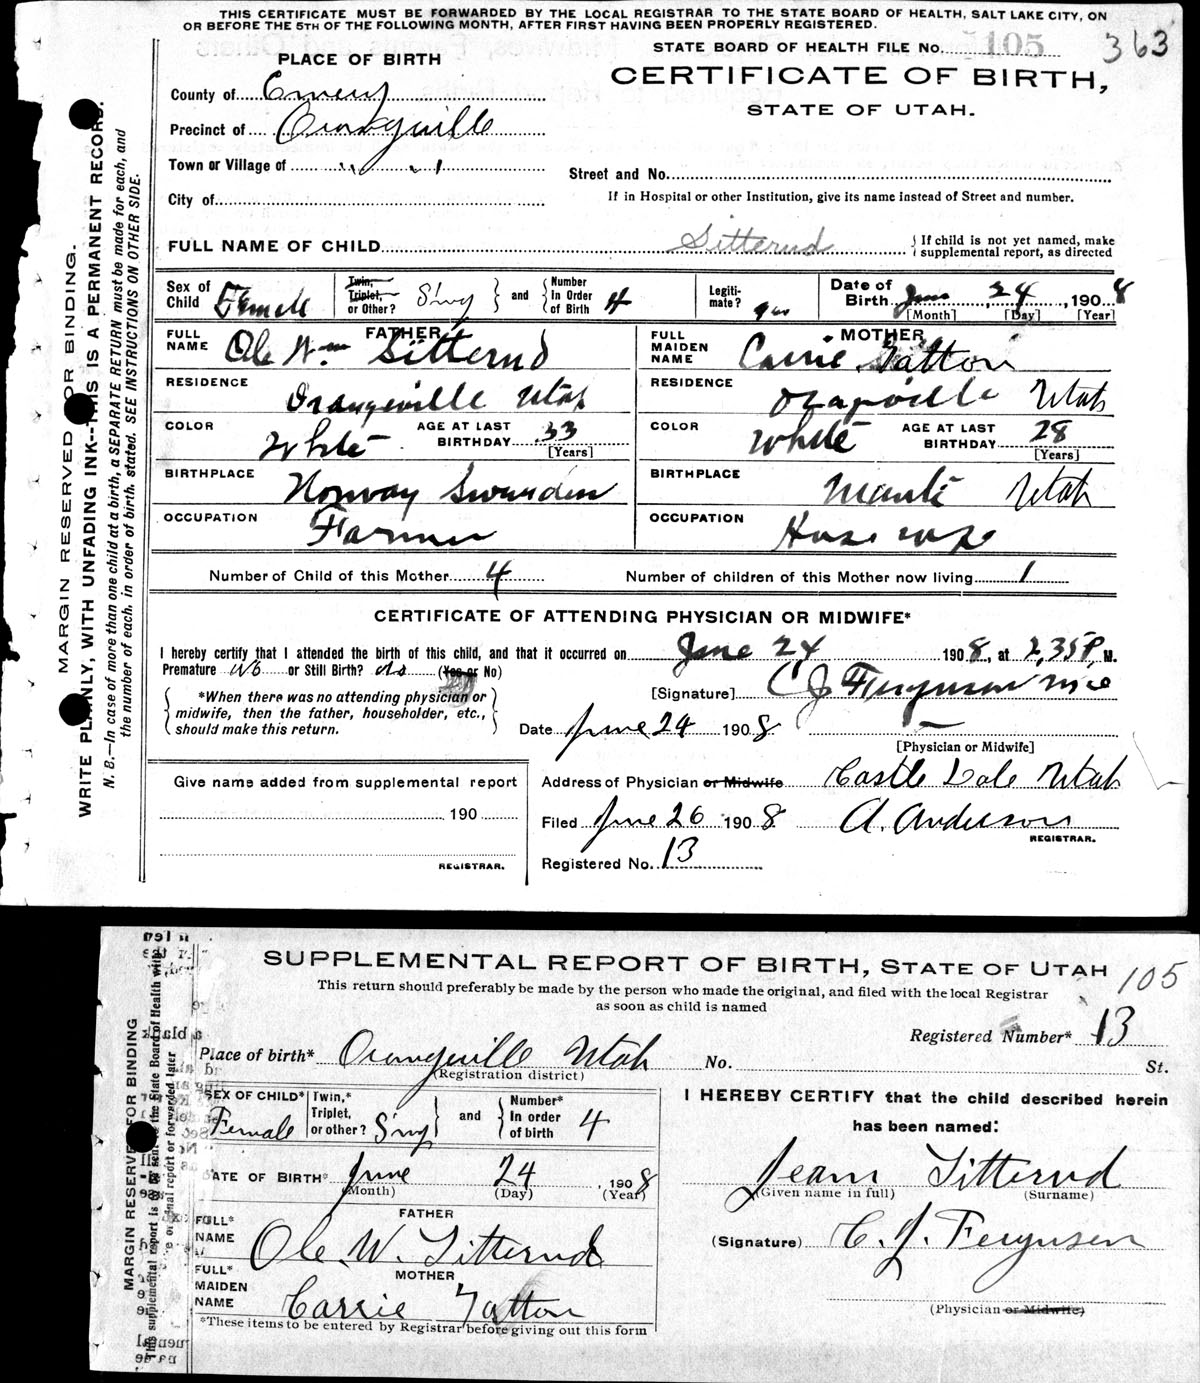 THIS CERTIFICATE MUST BE FORWARDED BY THE LOCAL REGISTRAR TO THE STATE BOARD OF HEALTH, SALT LAKE CITY, ON
OR BEFORE THE 5TH OF THE FOLLOWING MONTH, AFTER FIRST HAVING BEEN PROPERLY REGISTERED.
STATE BOARD OF HEALTH FILE No. 105 363
PLACE OF BIRTH
CERTIFICATE OF BIRTH,
STATE OF UTAH.
County of Emery
Precinct of Orangeville
Town or Village of " "
Street and No.
If in Hospital or other Institution, give its name instead of Street and number.
City of
FULL NAME OF CHILD Sitterud { If child is not yet named, make supplemental report, as directed
Sex of Child Female Twin, Triplet, or Other? Sing } and { Number In Order of Birth 4 Legiti-mate? yes Date of Birth June 24, 1908
[Month] [Day] [Year]
FATHER MOTHER
FULL NAME Ole Wm Sitterud FULL MAIDEN NAME Carrie Tatton
RESIDENCE Orangeville Utah RESIDENCE Orangville Utah
COLOR White AGE AT LAST BIRTHDAY 33 [Years] COLOR White AGE AT LAST BIRTHDAY 28 [Years]
BIRTHPLACE Norway BIRTHPLACE Manti Utah
OCCUPATION Farmer OCCUPATION House wife
Number of Child of this Mother 4 Number of children of this Mother now living 1
CERTIFICATE OF ATTENDING PHYSICIAN OR MIDWIFE*
I hereby certify that I attended the birth of this child, and that it occurred on June 24 1908, at 2,35 P, M.
Premature No or Still Birth? No (Yes or No)
[Signature] C J Ferguson
{ *When there was no attending physician or midwife, then the father, householder, etc., should make this return. }
Date June 24 1908
[Physician or Midwife]
Give name added from supplemental report
190
REGISTRAR.
Address of Physician or Midwife Castle Dale Utah
Filed June 26 1908 A. Anderson
REGISTRAR.
Registered No. 13
MARGIN RESERVED FOR BINDING.
WRITE PLAINLY, WITH UNFADING INK--THIS IS A PERMANENT RECORD.
N. B.—In case of more than one child at a birth, a SEPARATE RETURN must be made for each, and
the number of each, in order of birth, stated. SEE INSTRUCTIONS ON OTHER SIDE.
SUPPLEMENTAL REPORT OF BIRTH, STATE OF UTAH 105
This return should preferably be made by the person who made the original, and filed with the local Registrar
as soon as child is named
Registered Number* 13
Place of birth* Orangeville Utah No. St.
(Registration district)
SEX OF CHILD* Female Twin, Triplet, or other? Sing } and { Number* In order of birth 4
DATE OF BIRTH* June 24, 1908
(Month) (Day) (Year)
FATHER
FULL* NAME Ole W. Sitterud
MOTHER
FULL* MAIDEN NAME Carrie Tatton
*These items to be entered by Registrar before giving out this form
I HEREBY CERTIFY that the child described herein
has been named:
Jean Sitterud
(Given name in full) (Surname)
(Signature) C. J. Ferguson
(Physician or Midwife)
MARGIN RESERVED FOR BINDING